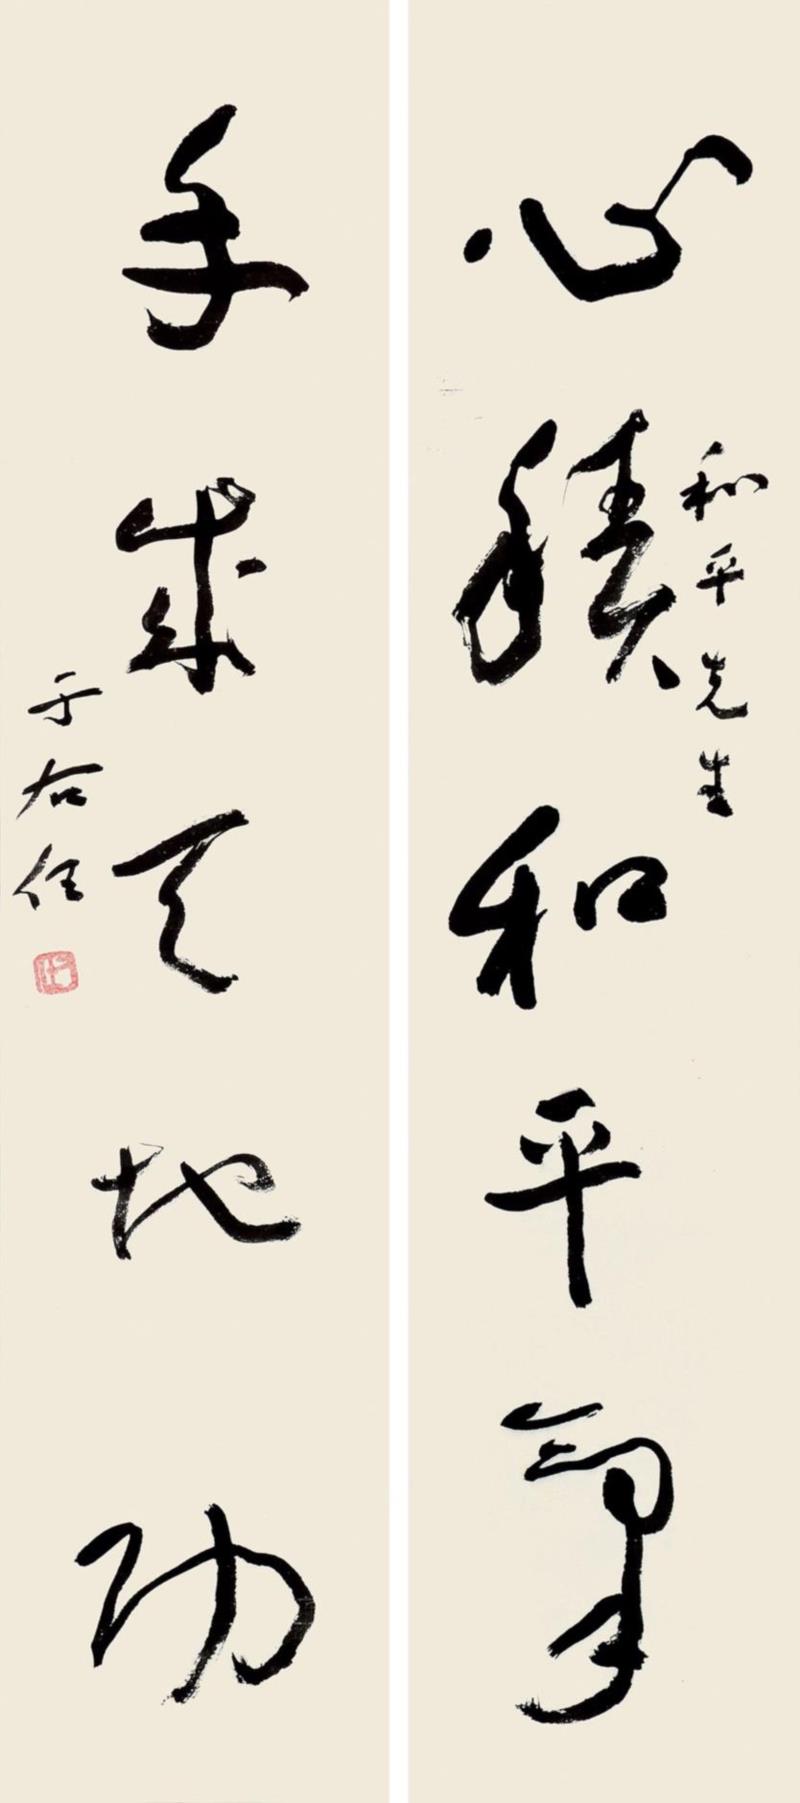 心積和平氣
和平先生
手成天地功
于右任